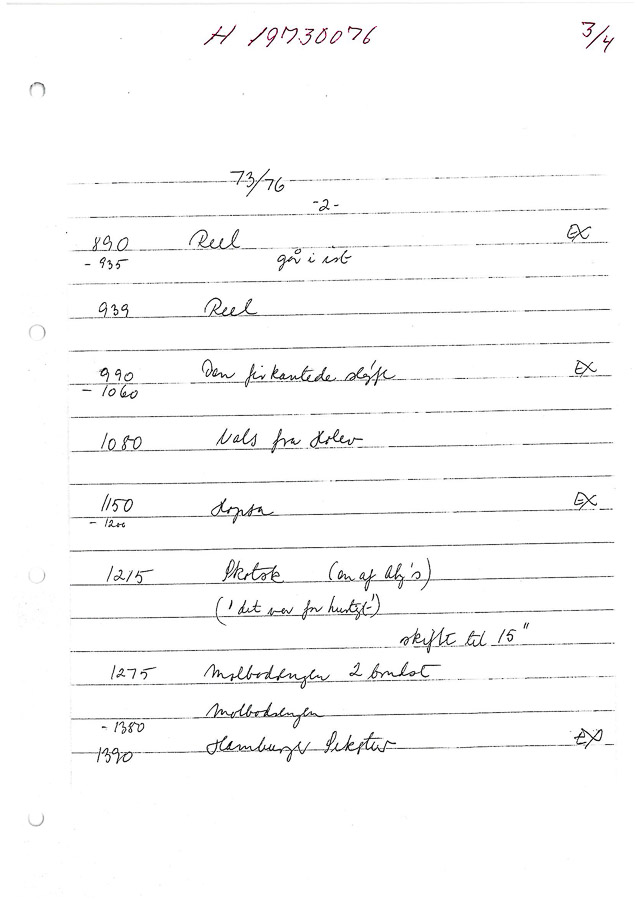 H 19730076 3/4
73/76
-2-
890 Reel EX
- 935 gå i ist
939 Reel
990 Den firkantede sløjfe EX
- 1060
1080 Vals fra
1150 Hopsa EX
- 1200
1215 Skotsk (en af
('det var for hurtigt')
skift til 15"
1275 Molbodrengen 2
Molbodrengen
- 1380
1390 Hamburger Sekstur EX